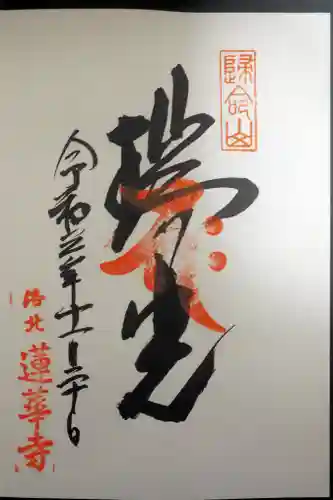 歸命山
瑞光
令和三年十一月二十日
洛北
蓮華寺